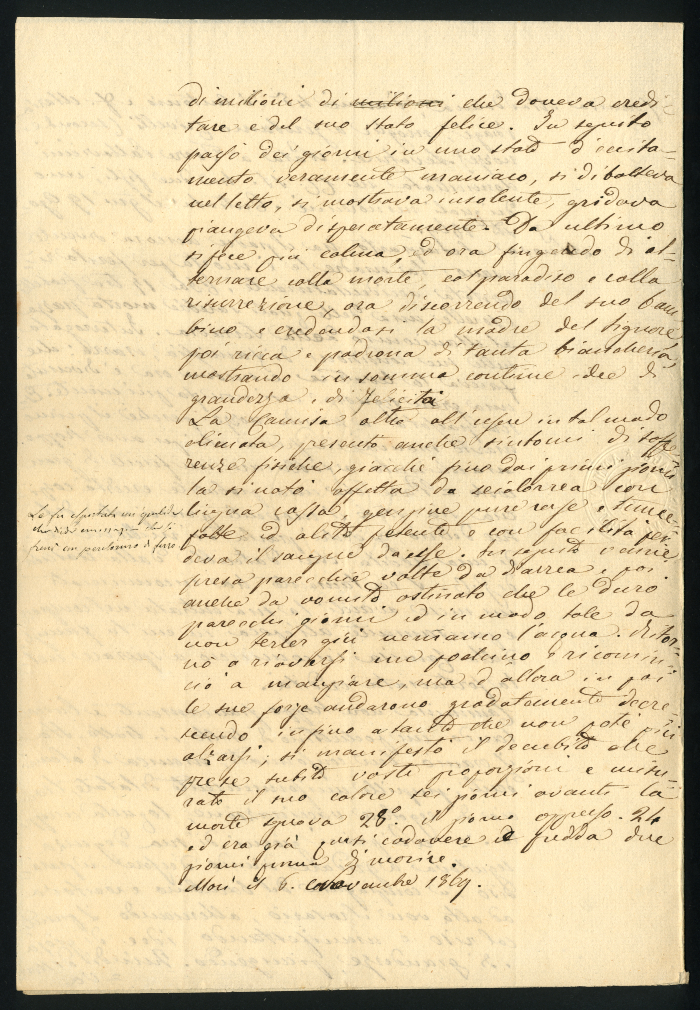 di milioni di milioni che doveva eredi
tare e del suo stato felice. In seguito
passò dei giorni in uno stato d'eccita-
mento veramente maniaco, si dibatteva
nel letto, si mostrava insolente, gridava
piangeva disperatamente. Da ultimo
si fece più calma, ed ora fingendo di al-
ternare colla morte, col paradiso e colla
risurrezione, ora discorrendo del suo bam
bino e credendosi la madre del Signore,
poi ricca e padrona di tanta biancheria,
mostrando in somma continue idee di
grandezza e di felicità
La Camisa oltre all'essere in tal modo
alienata, presentò anche sintomi di soffe
renze fisiche, giacchè fino dai primi giorni
la si notò affetta da scialorrea con
lingua rossa, gengive pure rosse e tume-
fatte ed alito fetente e con facilità per
deva il sangue da esse. In seguito venne
presa parecchie volte da diarrea e poi
anche da vomito ostinato che le durò
parecchi giorni ed in modo tale da
non tener giù nemmeno l'acqua. Ritor-
nò a riaversi un pochino e ricomin
ciò a mangiare, ma d'allora in poi
le sue forze andarono gradatamente decre
scendo infino a tanto che non potè più
alzarsi; si manifestò il decubito che
prese subito vaste proporzioni e misu
rato il suo calore sei giorni avanti la
morte segnava 28° il giorno appresso 24
ed era già quasi cadavere e fredda due
giorni prima di morire.
Morì il 6. Novembre 1869.
La fu